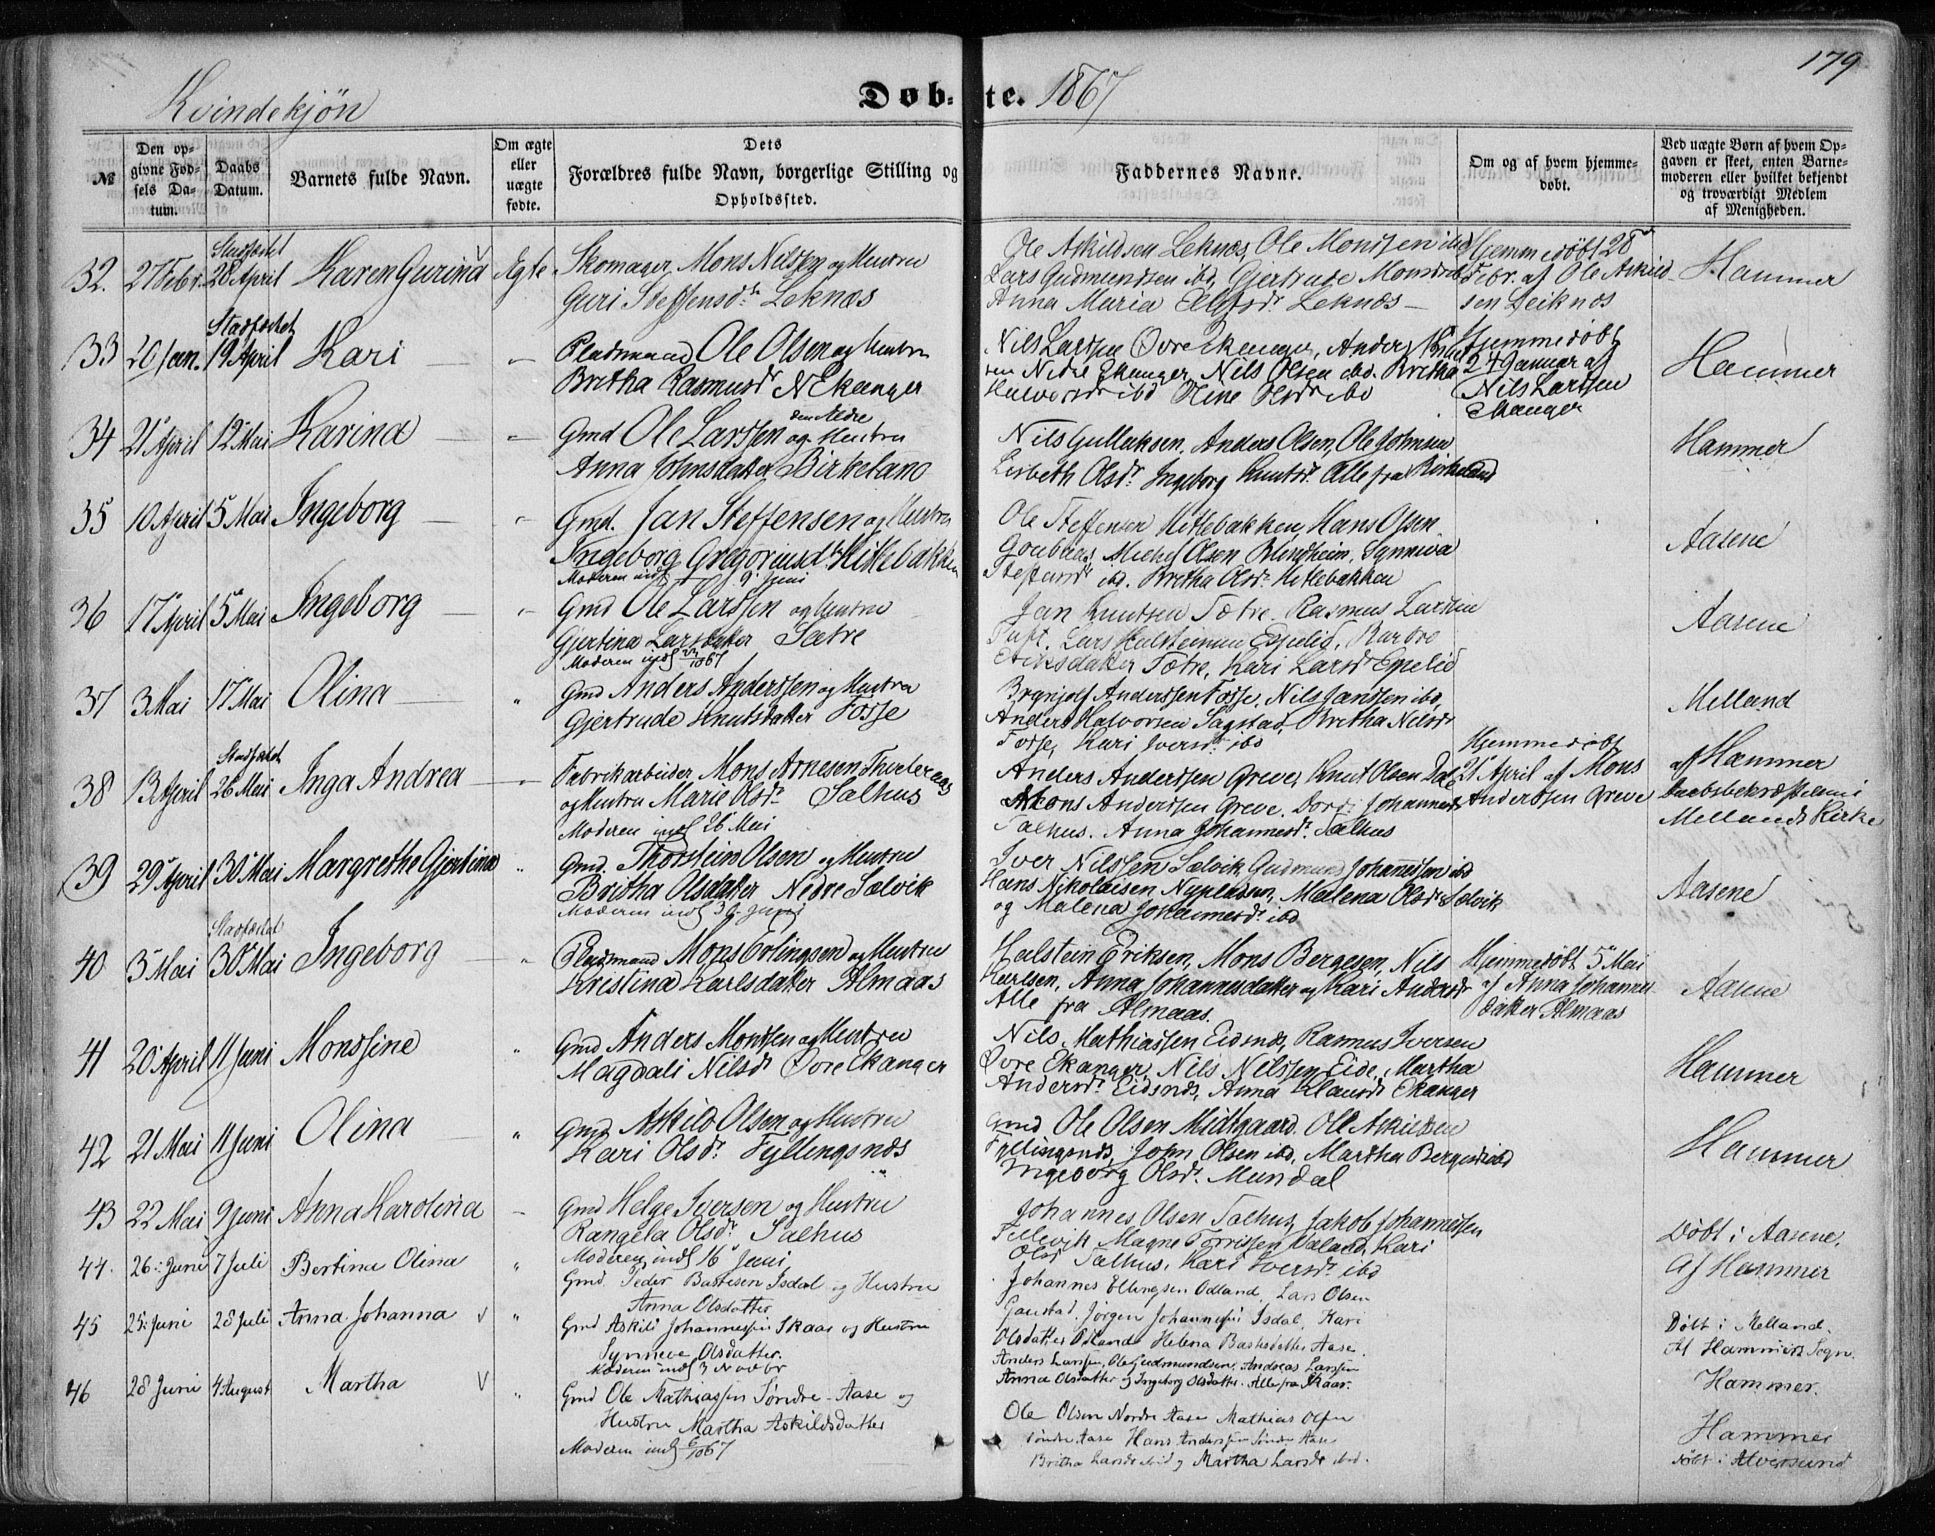 179
Kvindekjøn
Døb-te. 1867
№
Den opgivne Fødsels Datum.
Daabs Datum.
Barnets fulde Navn.
Om ægte eller uægte fødte.
Dets Forældres fulde Navn, borgerlige Stilling og Opholdssted.
Faddernes Navne.
Om og af hvem hjemmedøbt.
Ved uægte Børn af hvem Opgaven er skeet, enten Barnemoderen eller hvilket bekjendt og troværdigt Medlem af Menigheden.
32. 27 Febr. Stadfæstet 28 April Karen Gurina Ægte
Skomager Mons Nilsen og Hustru
Guri Steffensdr Leknæs
Ole Askildsen Leknæs, Ole Monssen ibd
Lars Gudmundsen ibd, Gjertrude Monsdr
Anna Maria Leknæs
Hjemmedøbt 28
Febr. af Ole Askild
sen Leiknes
Hammer
33 20 Jan. Stadfæstet 19 April Kari
Pladsmand Ole Olsen og Hustru
Bretha Rasmusdr N Ekanger
Nils Larssen Øvre Ekanger, Anders
Nedre Ekanger, Nils Olsen ibd. Bretha
Halvorsdr ibd Stine Olsdr ibd
Hjemmedøbt
24 Januar af
Nils Larssen
Ekanger
Hammer
34 21 April 12 Mai Karina
Gmd Ole Larssen den Ældre og Hustru
Anna Johnsdatter Birkeland
Nils Gullaksen, Anders Olsen, Ole Johnsen
Lisbeth Olsdr Ingeborg Knutsdr Alle fra Birkeland
Hammer
35 10 April 5 Mai Ingeborg
Gmd. Jan Steffensen og Hustru
Ingeborg Gregoriusdr Hitlebakken
Moderen indl 9 Juni
Ole Steffensen Hitlebakken, Hans Olsen
Michel Olsen Blindheim, Synniva
Steffensdr ibd. Bretha Olsdr Hitlebakken
Aasene
36 17 April 5 Mai Ingeborg
Gmd Ole Larssen og Hustru
Gjertina Larsdatter Sætre
Jan Knutsen Sætre. Rasmus Larsen
Tuft. Lars Halsteinsen Espelid, Barbro
Eriksdatter Sætre, Kari Larsdr Espelid
Aasene
37 3 Mai 17 Mai Olina
Gmd Anders Anderssen og Hustru
Gjertrude Knutsdatter Fosse
Brynjolf Anderssen Fosse, Nils Janssen ibd,
Anders Halvorsen Sagstad, Bretha Nilsdr
Fosse, Kari Iversdr ibd
Melland
38 13 April Stadfæstet 26 Mai Inga Andrea
Fabrikarbeider Mons Arnesen
og Hustru Marie Olsdr Salhus
Moderen indl 26 Mai
Anders Anderssen Greve, Knut Olsen Dale
Mons Anderssen Greve, Johannesdr
Salhus. Anna Johannesdr Salhus
Hjemmedøbt
21 April af Mons
Anderssen Greve
af Hammer
Daabsbekræftelsen i
Mellands Kirke
39 29 April 30 Mai Margrethe Gjertina
Gmd. Thorstein Olsen og Hustru
Bretha Olsdatter Nedre Sælvik
Iver Nilssen Sælvik Gudmund Johannessen ibd
Hans Nikolaisen Nypladsen, Malena Olsdr Sælvik
og Malena Johannesdr ibd
Aasene
40 3 Mai Stadfæstet 30 Mai Ingeborg
Pladsmand Mons Erlingsen og Hustru
Kristina Karlsdatter Almaas
Halstein Eriksen, Mons Bergesen, Nils
Karlsen, Anna Johannesdatter og Kari Andersdr
Alle fra Almaas.
Hjemmedøbt 5 Mai
af Anna Johannes
datter Almaas
Aasene
41 20 April 11 Juni Monssine
Gmd Anders Monssen og Hustru
Magdali Nilsdr Øvre Ekanger
Nils Mathiassen Eidsnæs, Rasmus Iversen
Øvre Ekanger, Nils Nilssen Eide, Martha
Andersdr Eidsnæs, Anna Ekanger
Hammer
42 21 Mai 11 Juni Olina
Gmd Askild Olsen og Hustru
Kari Olsdr Fyllingsnæs
Gmd Ole Olsen Midtgaard. Ole Askildsen
Fyllingsnæs, John Olsen ibd, Martha Bergesdr ibd
Ingeborg Olsdr Mundal
Hammer
43 22 Mai 9 Juni Anna Karolina
Gmd Helge Iversen og Hustru
Rangela Olsdr Salhus
Moderen indl 16 Juni
Johannes Olsen Salhus, Jakob Johannessen
Magne Torrissen Kari
Olsdr Salhus, Kari Iversdr ibd
Døbt i Aasene.
44. 26: Juni 7 Juli Bertina Olina
Gmd. Peder Isdal og Hustru
Anna Olsdatter
Johannes Ellingsen Odland, Lars Olsen
Gaustad Jørgen Johannessen Isdal, Kari
Olsdatter Odland Helena Aase.
Af Hammer
45 25: Juni 28 Juli Anna Johanna
Gmd Askild Johannessen Skaar og Hustru
Synneve Olsdatter.
Moderen indl 3 Novbr
Anders Larssen, Ole Gudmundsen, Andreas Larssen
Anna Olsdatter og Ingeborg Olsdatter. Alle fra Skaar.
Døbt i Melland.
Af Hammers Sogn.
46 28 Juni 4 August Martha
Gmd Ole Mathiassen Søndre Aase og
Hustru Martha Askildsdatter
Moderen indl 6/10 67
Ole Olsen Nordre Aase Mathias Olsen
Søndre Aase Hans Anderssen Søndre Aase
Bretha Larsdr ibid og Martha Larsdr ibd.
Hammer.
Hammer
døbt i Alversund